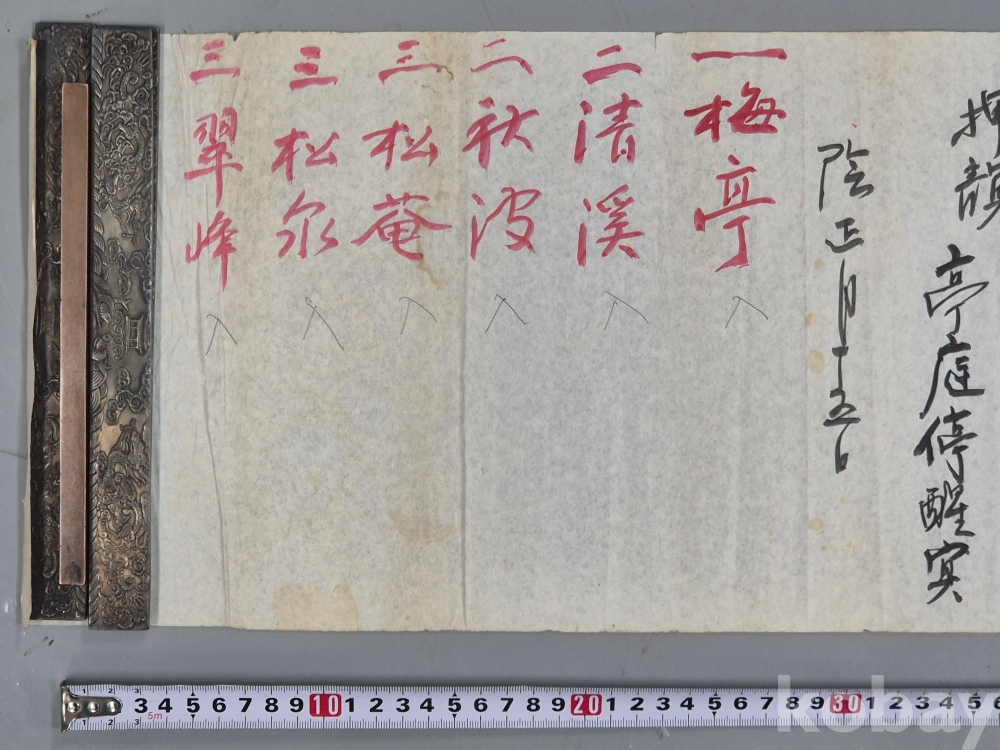 押韻 亭庭停醒寅
陰正月十五日
一梅亭 入
二清溪 入
二秋波 入
三松菴 入
三松泉 入
三翠峰 入
1 2 3 4 5 6 7 8 9 10 1 2 3 4 5 6 7 8 9 20 1 2 3 4 5 6 7 8 9 30 1 2 3 4 5 6
5m
kobay